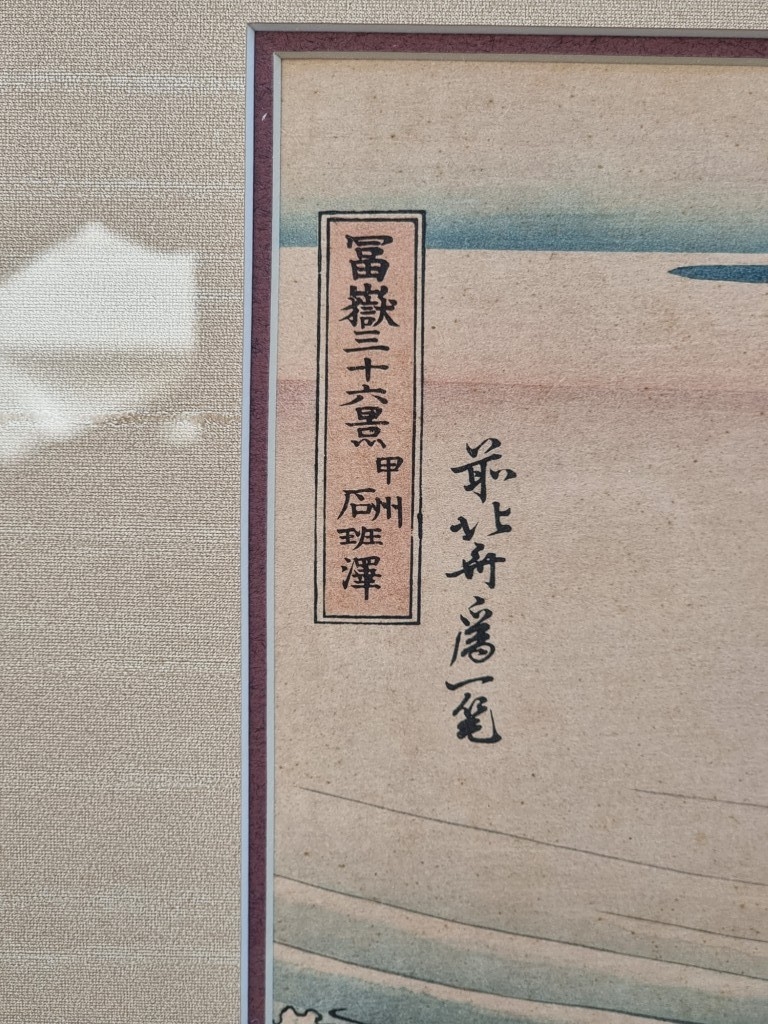 冨嶽三十六景
甲州
石班澤
前北斎爲一笔